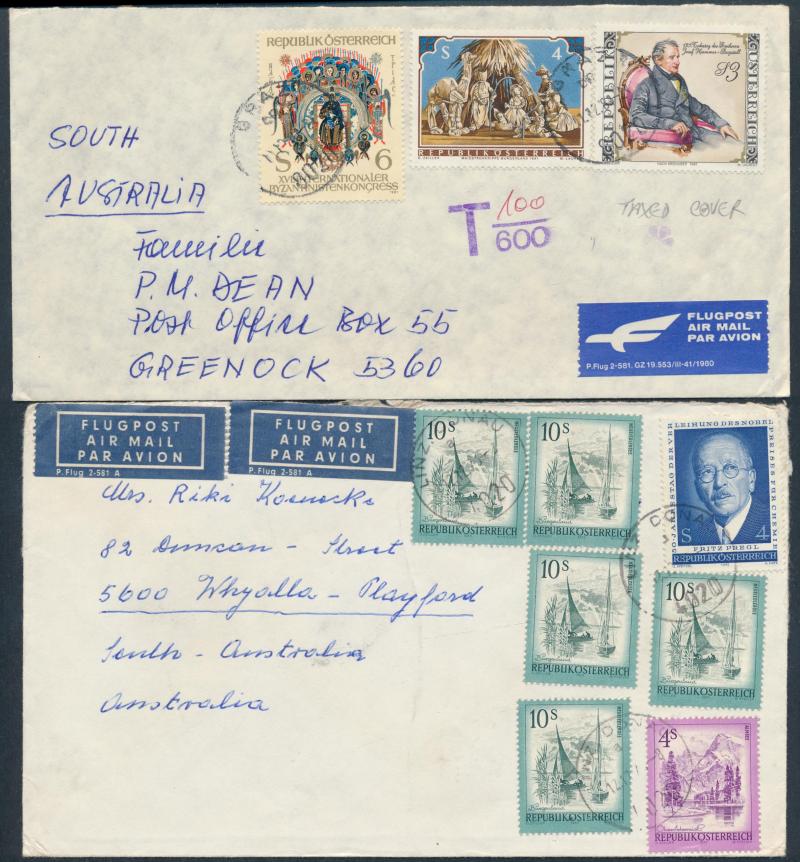 REPUBLIK ÖSTERREICH
S 6
XVI. INTERNATIONALER
BYZANTINISTENKONGRESS
S 4
REPUBLIK ÖSTERREICH
REPUBLIK
S3
ÖSTERREICH
SOUTH
AUSTRALIA
T 100
600
TAXED COVER
Familie
P.M. DEAN
Post Office Box 55
GREENOCK 5360
FLUGPOST
AIR MAIL
PAR AVION
P.Flug 2-581. GZ 19.553/III-41/1980
FLUGPOST
AIR MAIL
PAR AVION
P. Flug 2-581 A
FLUGPOST
AIR MAIL
PAR AVION
P. Flug 2-581 A
10S
Burgenland
REPUBLIK ÖSTERREICH
LINZ DONAU
4020
10S
Burgenland
REPUBLIK ÖSTERREICH
50. JAHRESTAG DER VERLEIHUNG DES NOBELPREISES FÜR CHEMIE
S 4
FRITZ PREGL
REPUBLIK ÖSTERREICH
DONAU
4020
Mrs. Riki
82 Duncan - Street
5600 Whyalla - Playford
South - Australia
Australia
10S
Burgenland
REPUBLIK ÖSTERREICH
10S
Burgenland
REPUBLIK ÖSTERREICH
10S
Burgenland
REPUBLIK ÖSTERREICH
4S
ALMSEE
REPUBLIK ÖSTERREICH